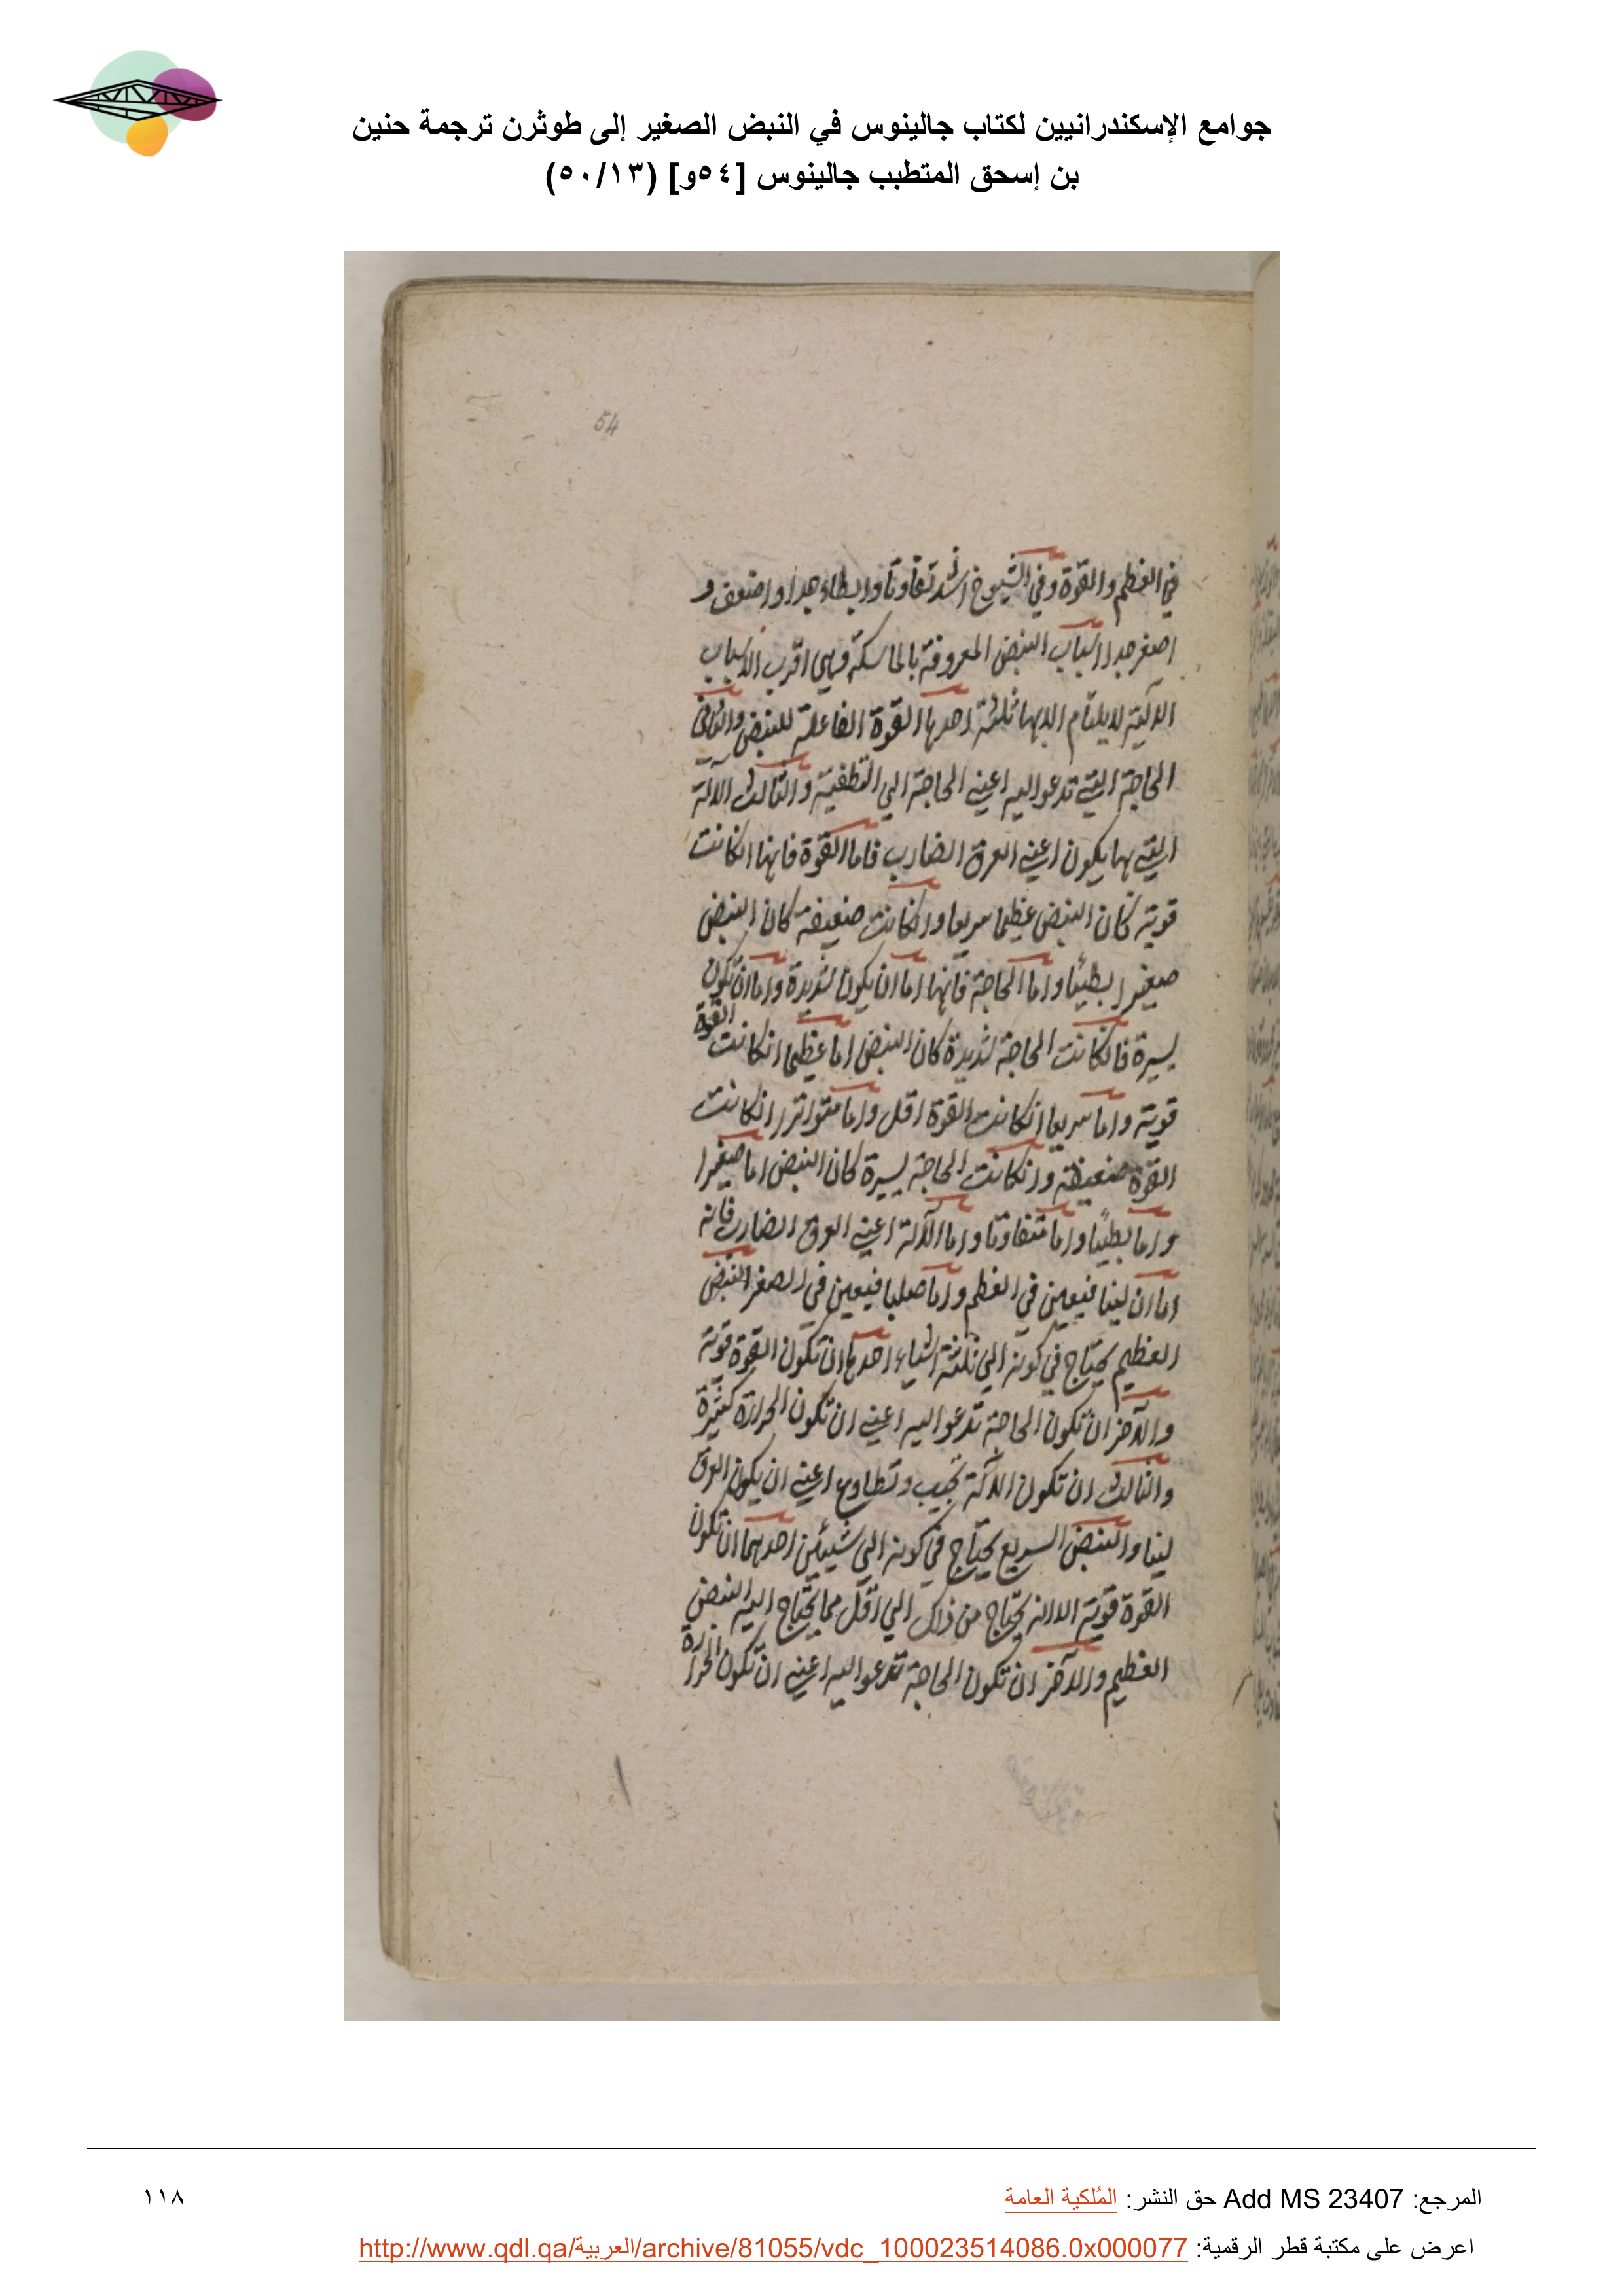 جوامع الإسكندرانيين لكتاب جالينوس في النبض الصغير إلى طوثرن ترجمة حنين
بن إسحق المتطبب جالينوس [٥٤و] (٥٠/١٣)
54
في العظم والقوة وفي الشيوخ اشد تفاوتا وابطاء جدا واضعف و
اصغر جدا اسباب النبض المعروفة بالماسكة وهي اقرب الاسباب
الآلية لا يلتام الا بها ثلثة احدها القوة الفاعلة للنبض والثاني
الحاجة التي تدعوا اليه اعني الحاجة الي التطفية والثالث الآلة
التي بها يكون اعني العرق الضارب فاما القوة فانها انكانت
قوية كان النبض عظيما سريعا وانكانت ضعيفة كان النبض
صغيرا بطيئا واما الحاجة فانها اما ان يكون شديدة واما ان تكون
يسيرة فانكانت الحاجة شديدة كان النبض اما عظيما انكانت القوة
قوية واما سريعا انكانت القوة اقل واما متواترا انكانت
القوة ضعيفة وانكانت الحاجة يسيرة كان النبض اما صغيرا
واما بطيئا واما متفاوتا واما الآلة اعني العرق الضارب فانه
اما ان لينا فيعين في العظم واما صلبا فيعين في الصغر النبض
العظيم يحتاج في كونه الي ثلثة اشياء احدها ان تكون القوة قوية
والآخر ان تكون الحاجة تدعوا اليه اعني ان تكون الحرارة كثيرة
والثالث ان تكون الآلة تجيب وتطاوع اعني ان يكون العرق
لينا والنبض السريع يحتاج في كونه الي شيئين احدهما ان تكون
القوة قوية الا انه يحتاج من ذلك الي اقل مما يحتاج اليه النبض
العظيم والآخر ان تكون الحاجة تدعوا اليه اعني ان تكون الحرارة
المرجع: Add MS 23407 حق النشر: المُلكية العامة
١١٨
اعرض على مكتبة قطر الرقمية: http://www.qdl.qa/العربية/archive/81055/vdc_100023514086.0x000077